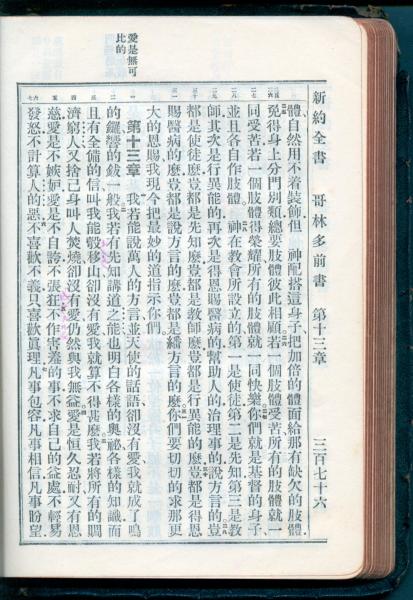 新約全書　哥林多前書　第十三章　三百七十六
體自然用不着裝飾但　神配搭這身子把加倍的體面給那有缺欠的肢體
免得身上分門別類總要肢體彼此相顧若一個肢體受苦所有的肢體就一
同受苦若一個肢體得榮耀所有的肢體就一同快樂你們就是基督的身子
並且各自作肢體　神在教會所設立的第一是使徒第二是先知第三是教
師其次是行異能的再次是得恩賜醫病的幫助人的治理事的說方言的豈
都是使徒麼豈都是先知麼豈都是教師麼豈都是行異能的麼豈都是得恩
賜醫病的麼豈都是說方言的麼豈都是繙方言的麼你們要切切的求那更
大的恩賜我現今把最妙的道指示你們
第十三章　我若能說萬人的方言並天使的話語卻沒有愛我就成了鳴
的鑼響的鈸一般我若有先知講道之能也明白各樣的奧祕各樣的知識而
且有全備的信叫我能彀移山卻沒有愛我就算不得甚麼我若將所有的賙
濟窮人又捨己身叫人焚燒卻沒有愛仍然與我無益愛是恒久忍耐又有恩
慈愛是不嫉妒愛是不自誇不張狂不作害羞的事不求自己的益處不輕易
發怒不計算人的惡不喜歡不義只喜歡眞理凡事包容凡事相信凡事盼望
愛是無可
比的